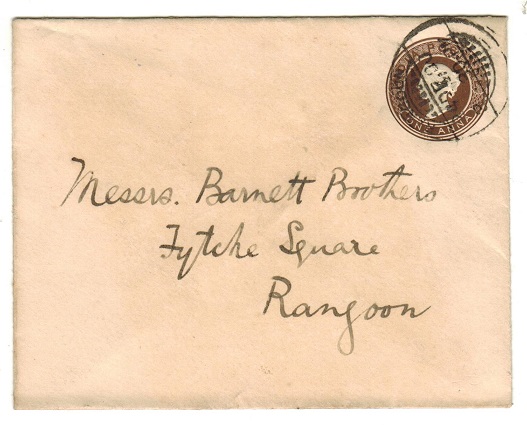 Messrs. Barnett Brothers
Fytche Square
Rangoon
ONE ANNA